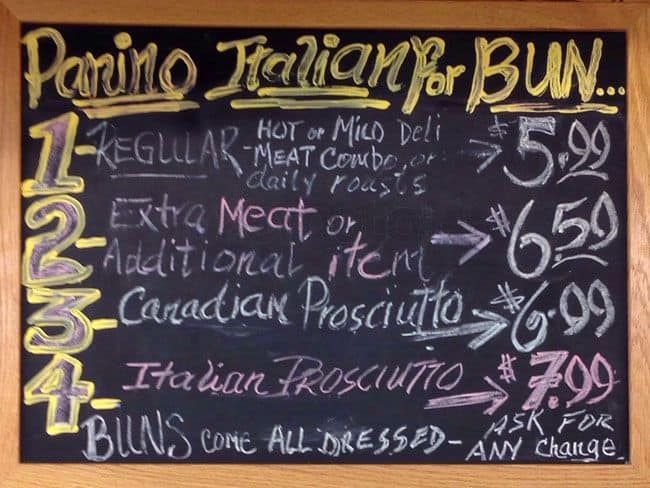 Panino Italian for BUN...
1-REGULAR HOT or MILD Deli
-MEAT Combo, or → $5.99
daily roasts
2- Extra Meat or
Additional item → $6.59
3- Canadian Prosciutto → $6.99
4- Italian PROSCIUTTO → $7.99
BUNS come ALL DRESSED- ASK FOR
ANY change